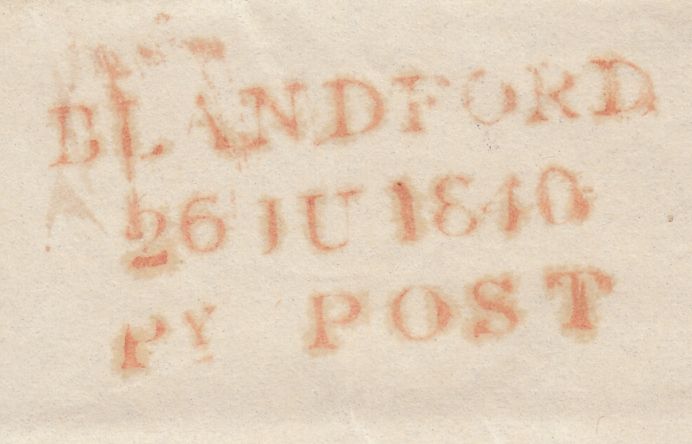 BLANDFORD
26 JU 1840
Py POST